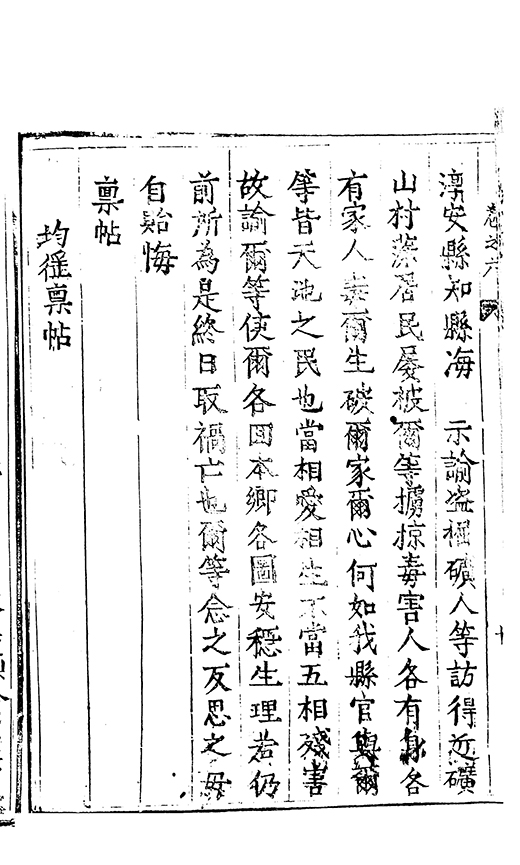 卷之六
淳安縣知縣海　示諭盜掘礦人等訪得近礦
山村落居民屢被爾等擄掠毒害人各有身各
有家人害爾生破爾家爾心何如我縣官與爾
等皆天地之民也當相愛相生不當互相殘害
故諭爾等使爾各回本鄉各圖安穩生理若仍
前所為是終日取禍亡也爾等念之反思之毋
自貽悔
稟帖
均徭稟帖